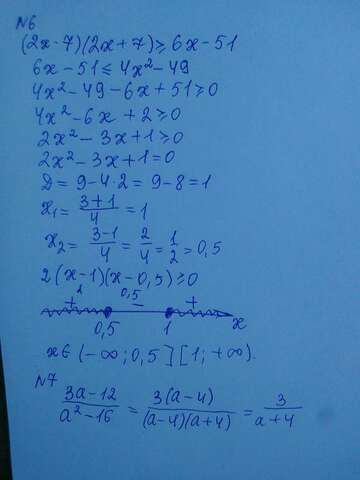 №6
(2x-7)(2x+7)≥6x-51
6x-51≤4x²-49
4x²-49-6x+51≥0
4x²-6x+2≥0
2x²-3x+1≥0
2x²-3x+1=0
D=9-4·2=9-8=1
x₁=(3+1)/4=1
x₂=(3-1)/4=2/4=1/2=0,5
2(x-1)(x-0,5)≥0
+ 0,5 - +
0,5 1 x
x∈(-∞;0,5][1;+∞).
№7
(3a-12)/(a²-16)=(3(a-4))/((a-4)(a+4))=3/(a+4)